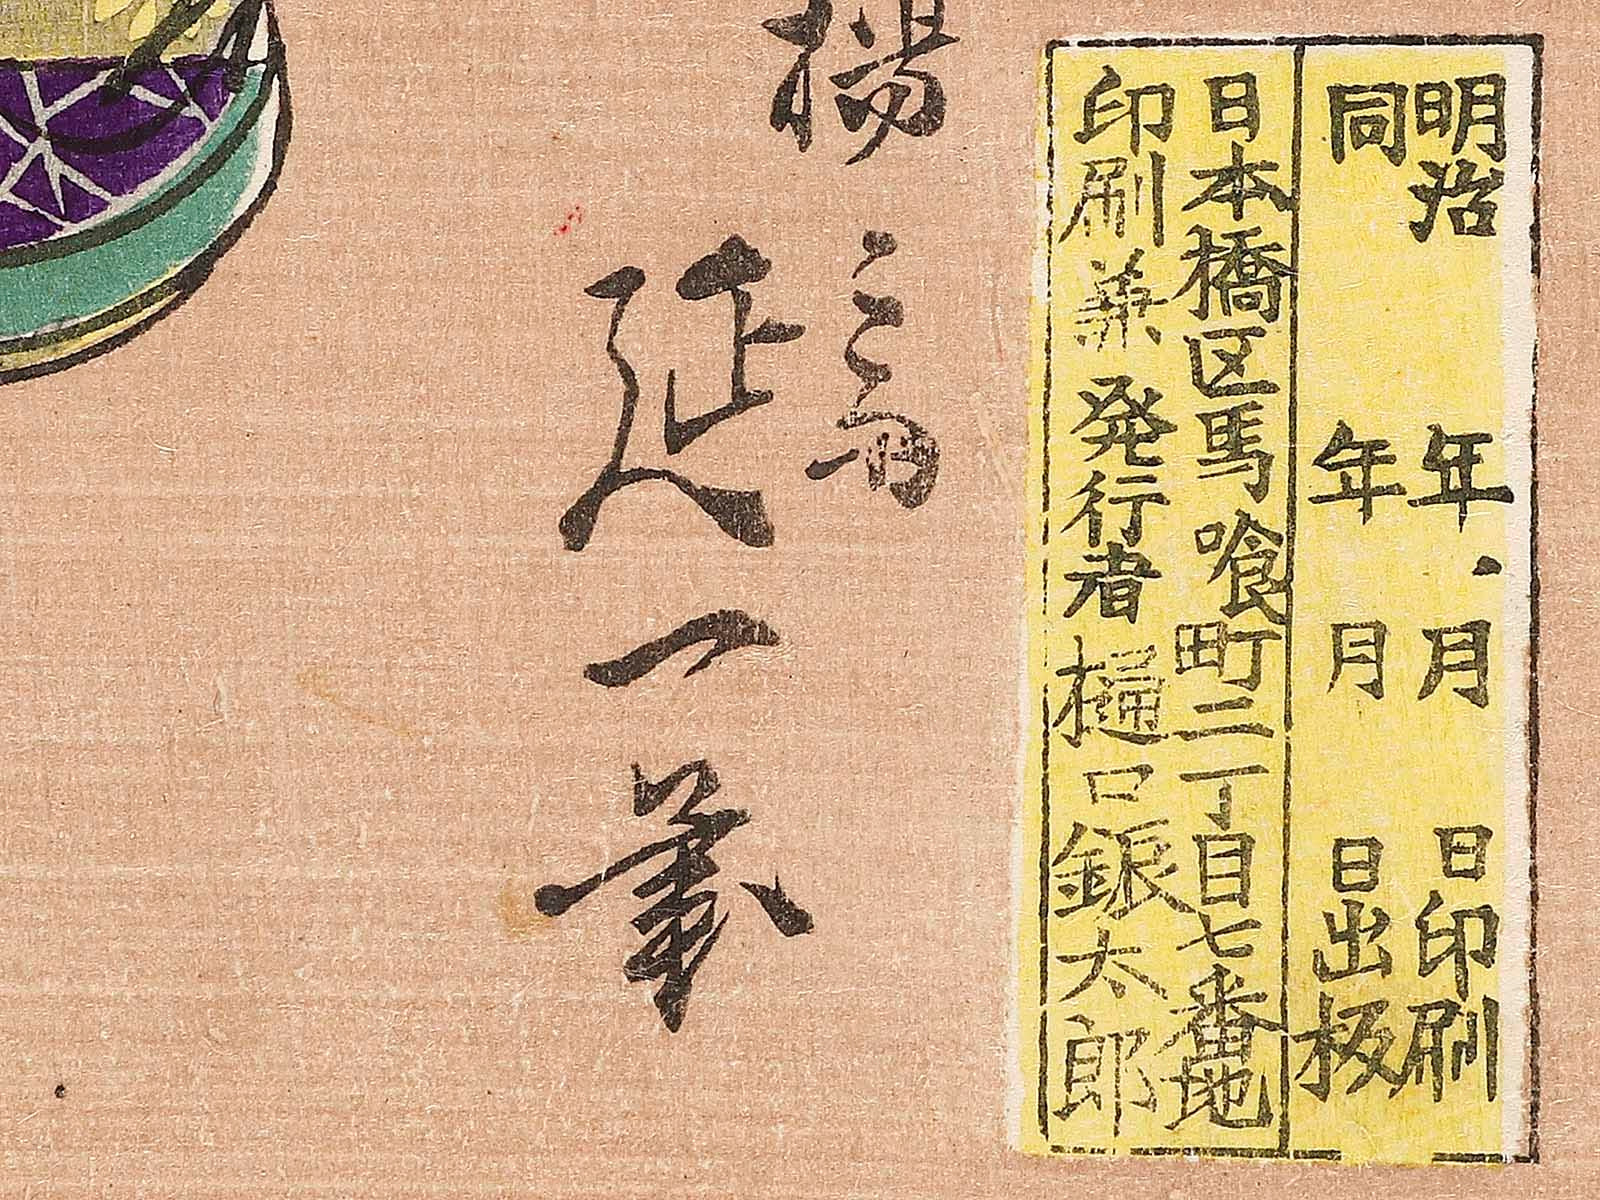 明治 年 月 日印刷
同 年 月 日出板
日本橋区馬喰町二丁目七番地
印刷兼発行者樋口銀太郎
楊斎
延一筆